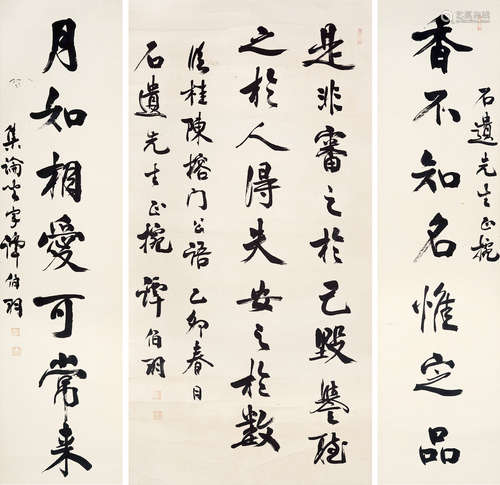 香不知名惟定品
石遺先生正捥
是非審之於己毀譽聽
之於人得失安之於數
臨桂陳榕门公語 乙卯春日
石遺先生正捥 譚伯羽
月如相愛可常来
集論坐字譚伯羽